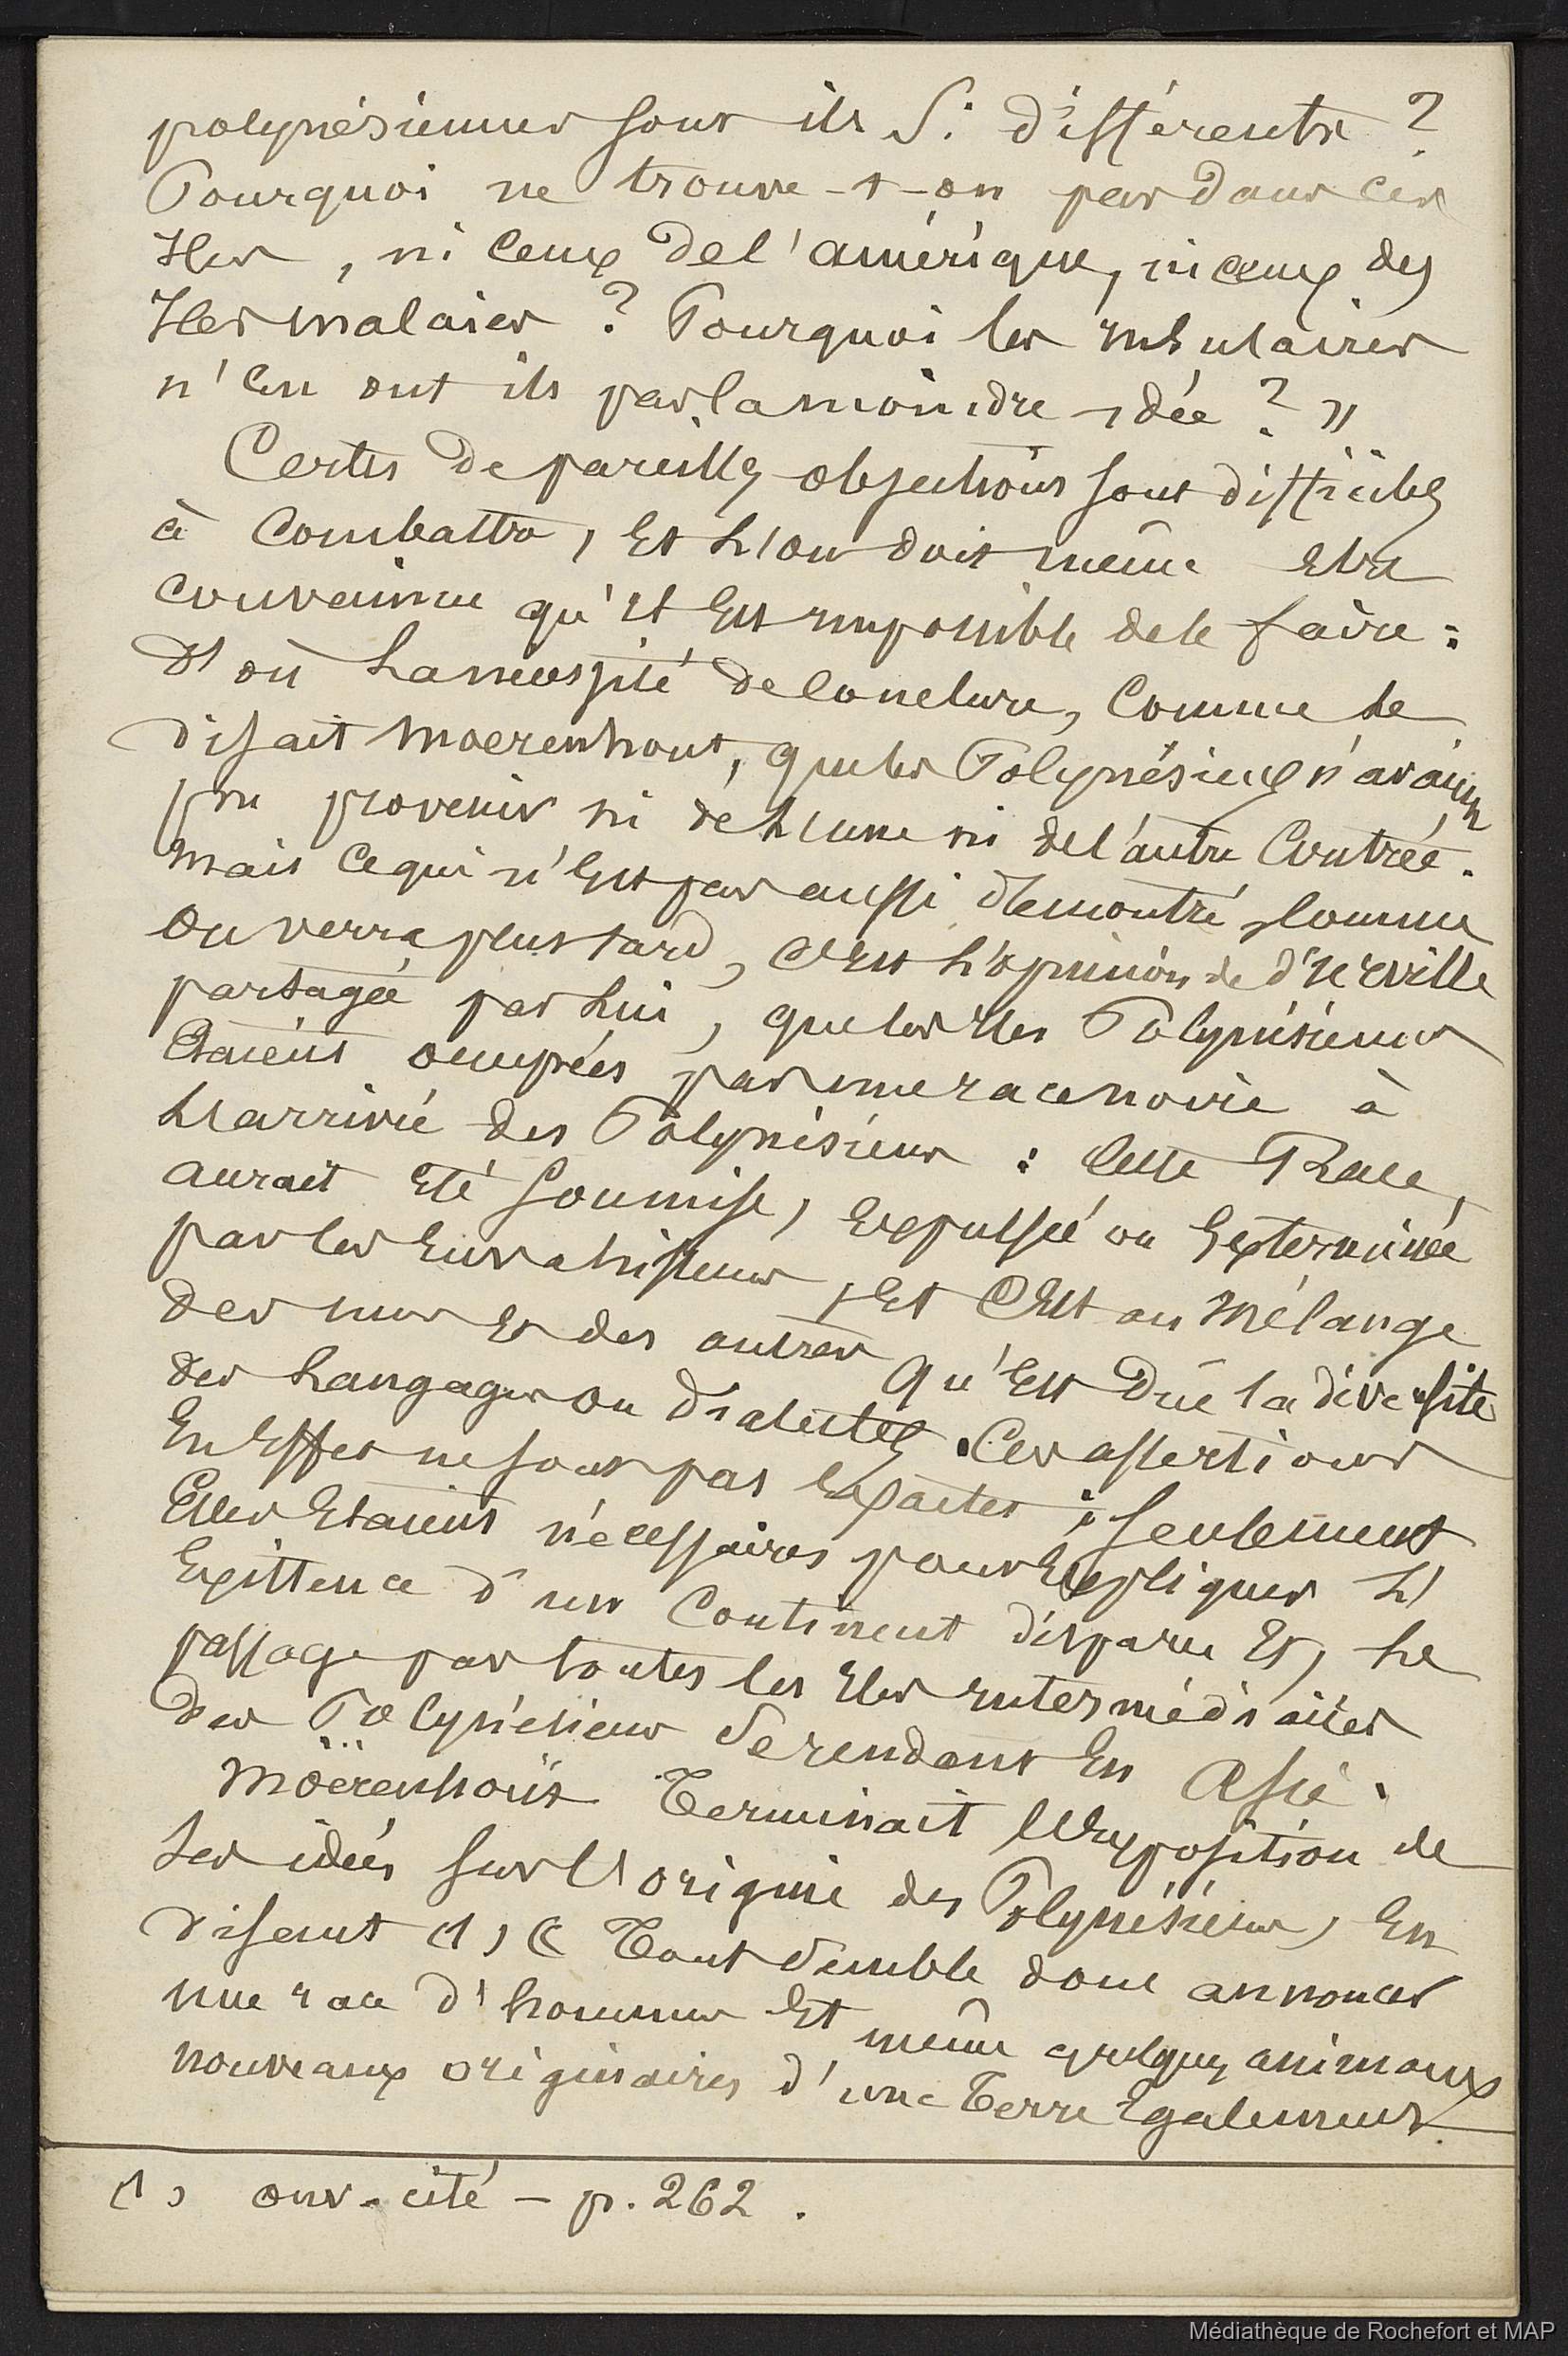 polynésiennes sont ils si différents ?
Pourquoi ne trouve-t-on pas dans ces
Iles, ni ceux de l'amérique, ni ceux des
Iles malaies ? Pourquoi les insulaires
n'en ont ils pas la moindre idée ? »
Certes de pareilles objections sont difficiles
à combattre, et l'on doit même etre
convaincu qu'il est impossible de le faire :
d'où la nécessité de conclure, comme le
disait Moerenhout, que les Polynésiens n'avaient
pu provenir ni de l'une ni de l'autre Contrée.
Mais ce qui n'est pas aussi démontré, comme
on verra plus tard, c'est l'opinion de d'Urville
partagée par lui, que les Iles Polynésiennes
étaient occupées par une race noire à
l'arrivée des Polynésiens : cette Race,
aurait été soumise, expulsée ou exterminée
par les envahisseurs, et c'est au mélange
des uns et des autres qu'est due la diversité
des langages ou dialectes. Ces assertions
en effet ne sont pas exactes ; seulement
elles étaient nécessaires pour expliquer l'
existence d'un continent disparu et, le
passage par toutes les Iles intermédiaires
des Polynésiens se rendant en Asie.
Moërenhoüt terminait l'exposition de
ses idées sur l'origine des Polynésiens, en
disant (1) « Tout semble donc annoncer
une race d'hommes et même quelques animaux
nouveaux originaires d'une terre également
(1) ouv. cité – p. 262.
Médiathèque de Rochefort et MAP